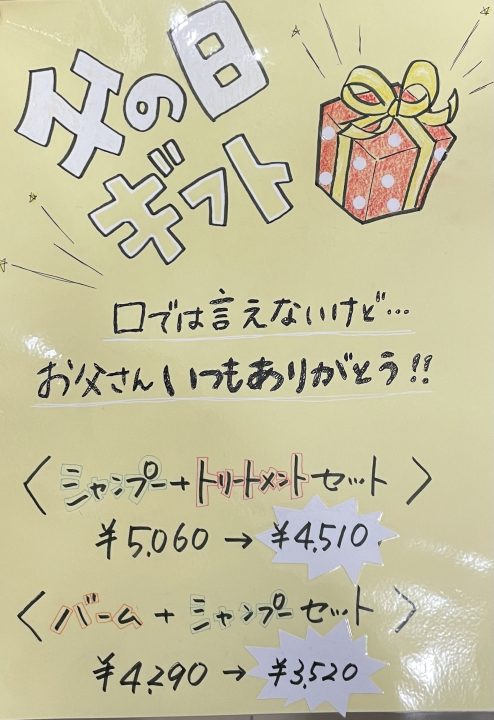 父の日
ギフト
口では言えないけど…
お父さんいつもありがとう!!
〈シャンプー+トリートメントセット〉
¥5,060→¥4,510
〈バーム+シャンプーセット〉
¥4,290→¥3,520